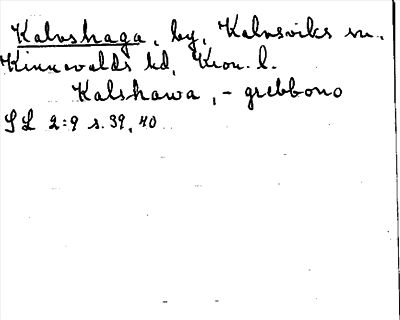 Kalvshaga, by, Kalvsviks sn.
Kinnevalds hd, Kron. l.
Kalshawa, - grebbono
SL 2:9 s. 39, 40